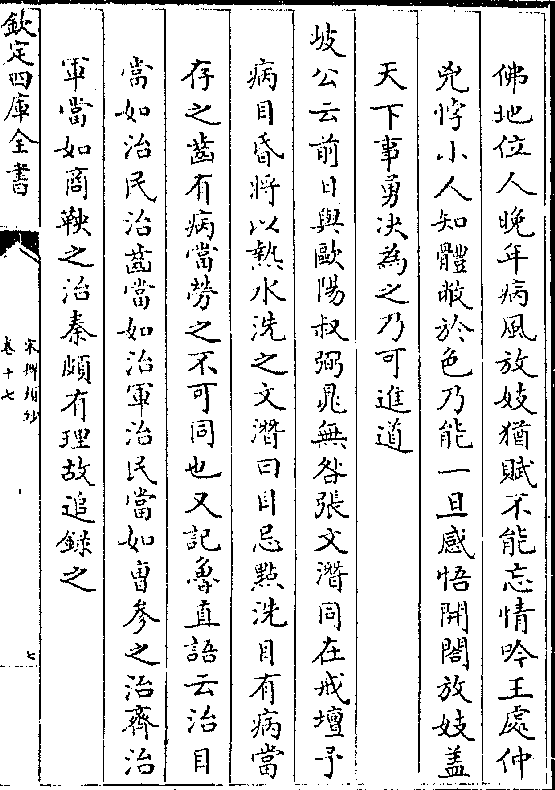 佛地位人晚年病風放妓猶賦不能忘情吟王處仲
兇悖小人知體敝於色乃能一旦感悟開閤放妓蓋
天下事勇決為之乃可進道
坡公云前日與歐陽叔弼晁無咎張文潛同在戒壇予
病目昏將以熱水洗之文潛曰目忌點洗目有病當
存之齒有病當勞之不可同也又記魯直語云治目
當如治民治齒當如治軍治民當如曹參之治齊治
軍當如商鞅之治秦頗有理故追錄之
欽定四庫全書
宋稗類鈔
卷十七
七